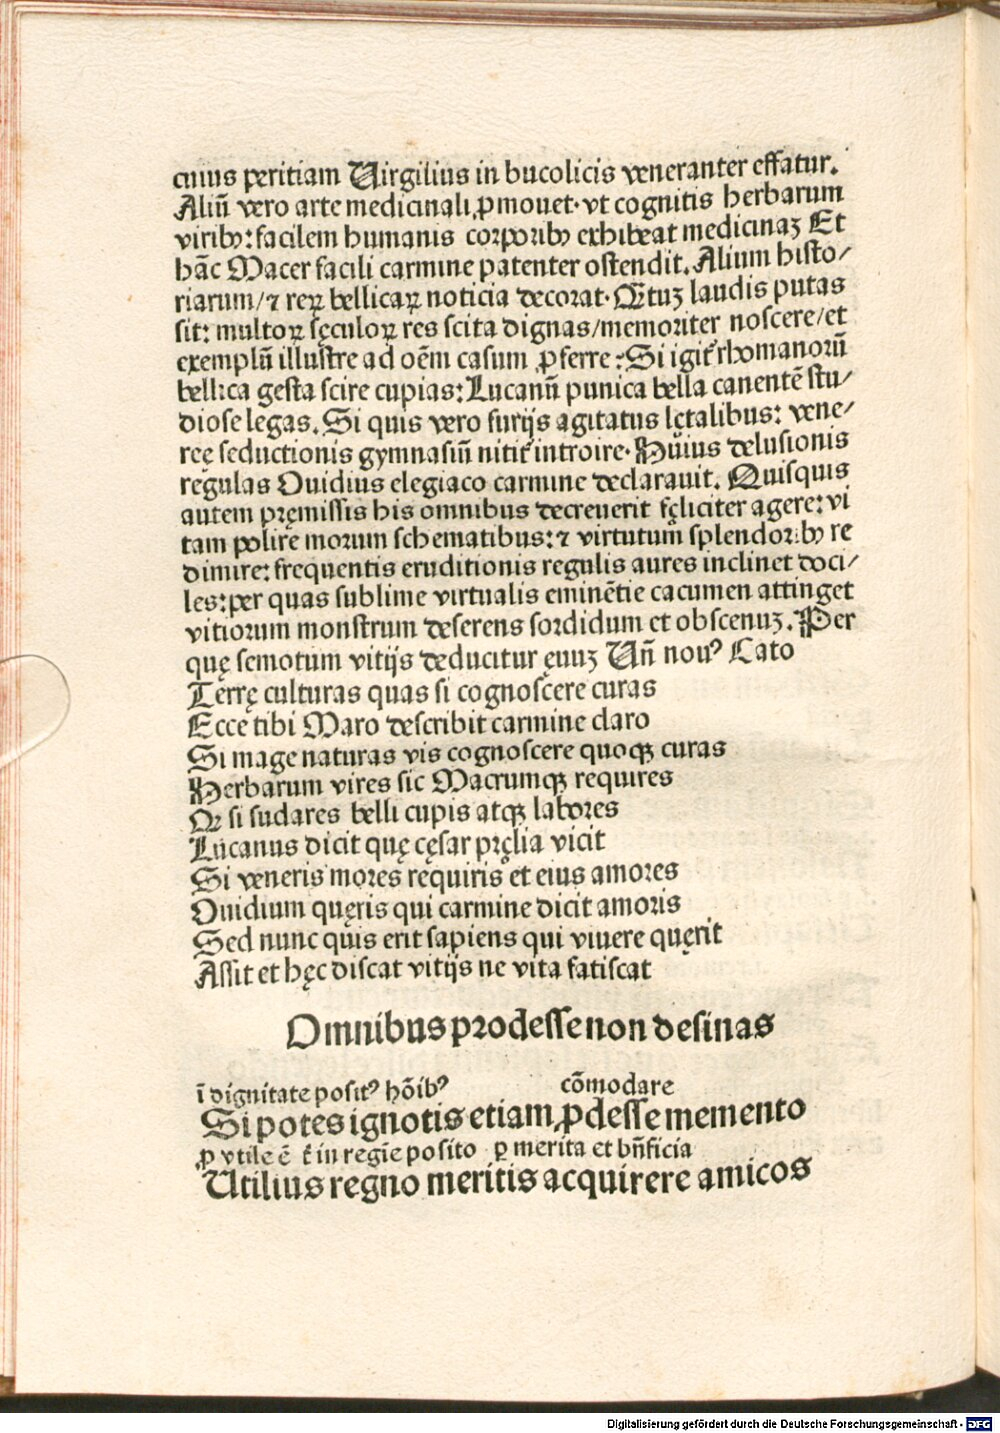 cuius peritiam Virgilius in bucolicis veneranter effatur.
Aliū vero arte medicinali ꝓmouet· vt cognitis herbarum
viribꝫ: facilem humanis corporibꝫ exhibeat medicinaꝫ Et
hāc Macer facili carmine patenter ostendit. Alium histo/
riarum/ ⁊ reꝝ bellicaꝝ noticia decorat· Qtuꝫ laudis putas
sit: multoꝝ sęculoꝝ res scita dignas/ memoriter noscere/ et
exemplū illustre ad oēm casum ꝓferre: Si igit᷑ rhomanorū
bellica gesta scire cupias: Lucanū punica bella canentē stu/
diose legas. Si quis vero furijs agitatus lętalibus: vene/
reę seductionis gymnasiū nitit᷑ introire· Huius delusionis
regulas Ouidius elegiaco carmine declarauit. Quisquis
autem pręmissis his omnibus decreuerit fęliciter agere: vi
tam polire morum schematibus: ⁊ virtutum splendoribꝫ re
dimire: frequentis eruditionis regulis aures inclinet doci/
les: per quas sublime virtualis eminētie cacumen attinget
vitiorum monstrum deserens sordidum et obscenuꝫ. Per
quę semotum vitijs deducitur ęuuꝫ Uñ nouꝰ Cato
Terrę culturas quas si cognoscere curas
Ecce tibi Maro describit carmine claro
Si mage naturas vis cognoscere quoqꝫ curas
Herbarum vires sic Macrumqꝫ requires
Qꝛ si sudares belli cupis atqꝫ labores
Lucanus dicit quę cęsar pręlia vicit
Si veneris mores requiris et eius amores
Ouidium quęris qui carmine dicit amoris
Sed nunc quis erit sapiens qui viuere quęrit
Assit et hęc discat vitijs ne vita fatiscat
Omnibus prodesse non desinas
ī dignitate positꝰ hōibꝰ cōmodare
Si potes ignotis etiam ꝓdesse memento
ꝓ vtile ē t᷑ in regīe posito ꝑ merita et bñficia
Utilius regno meritis acquirere amicos
Digitalisierung gefördert durch die Deutsche Forschungsgemeinschaft - DFG